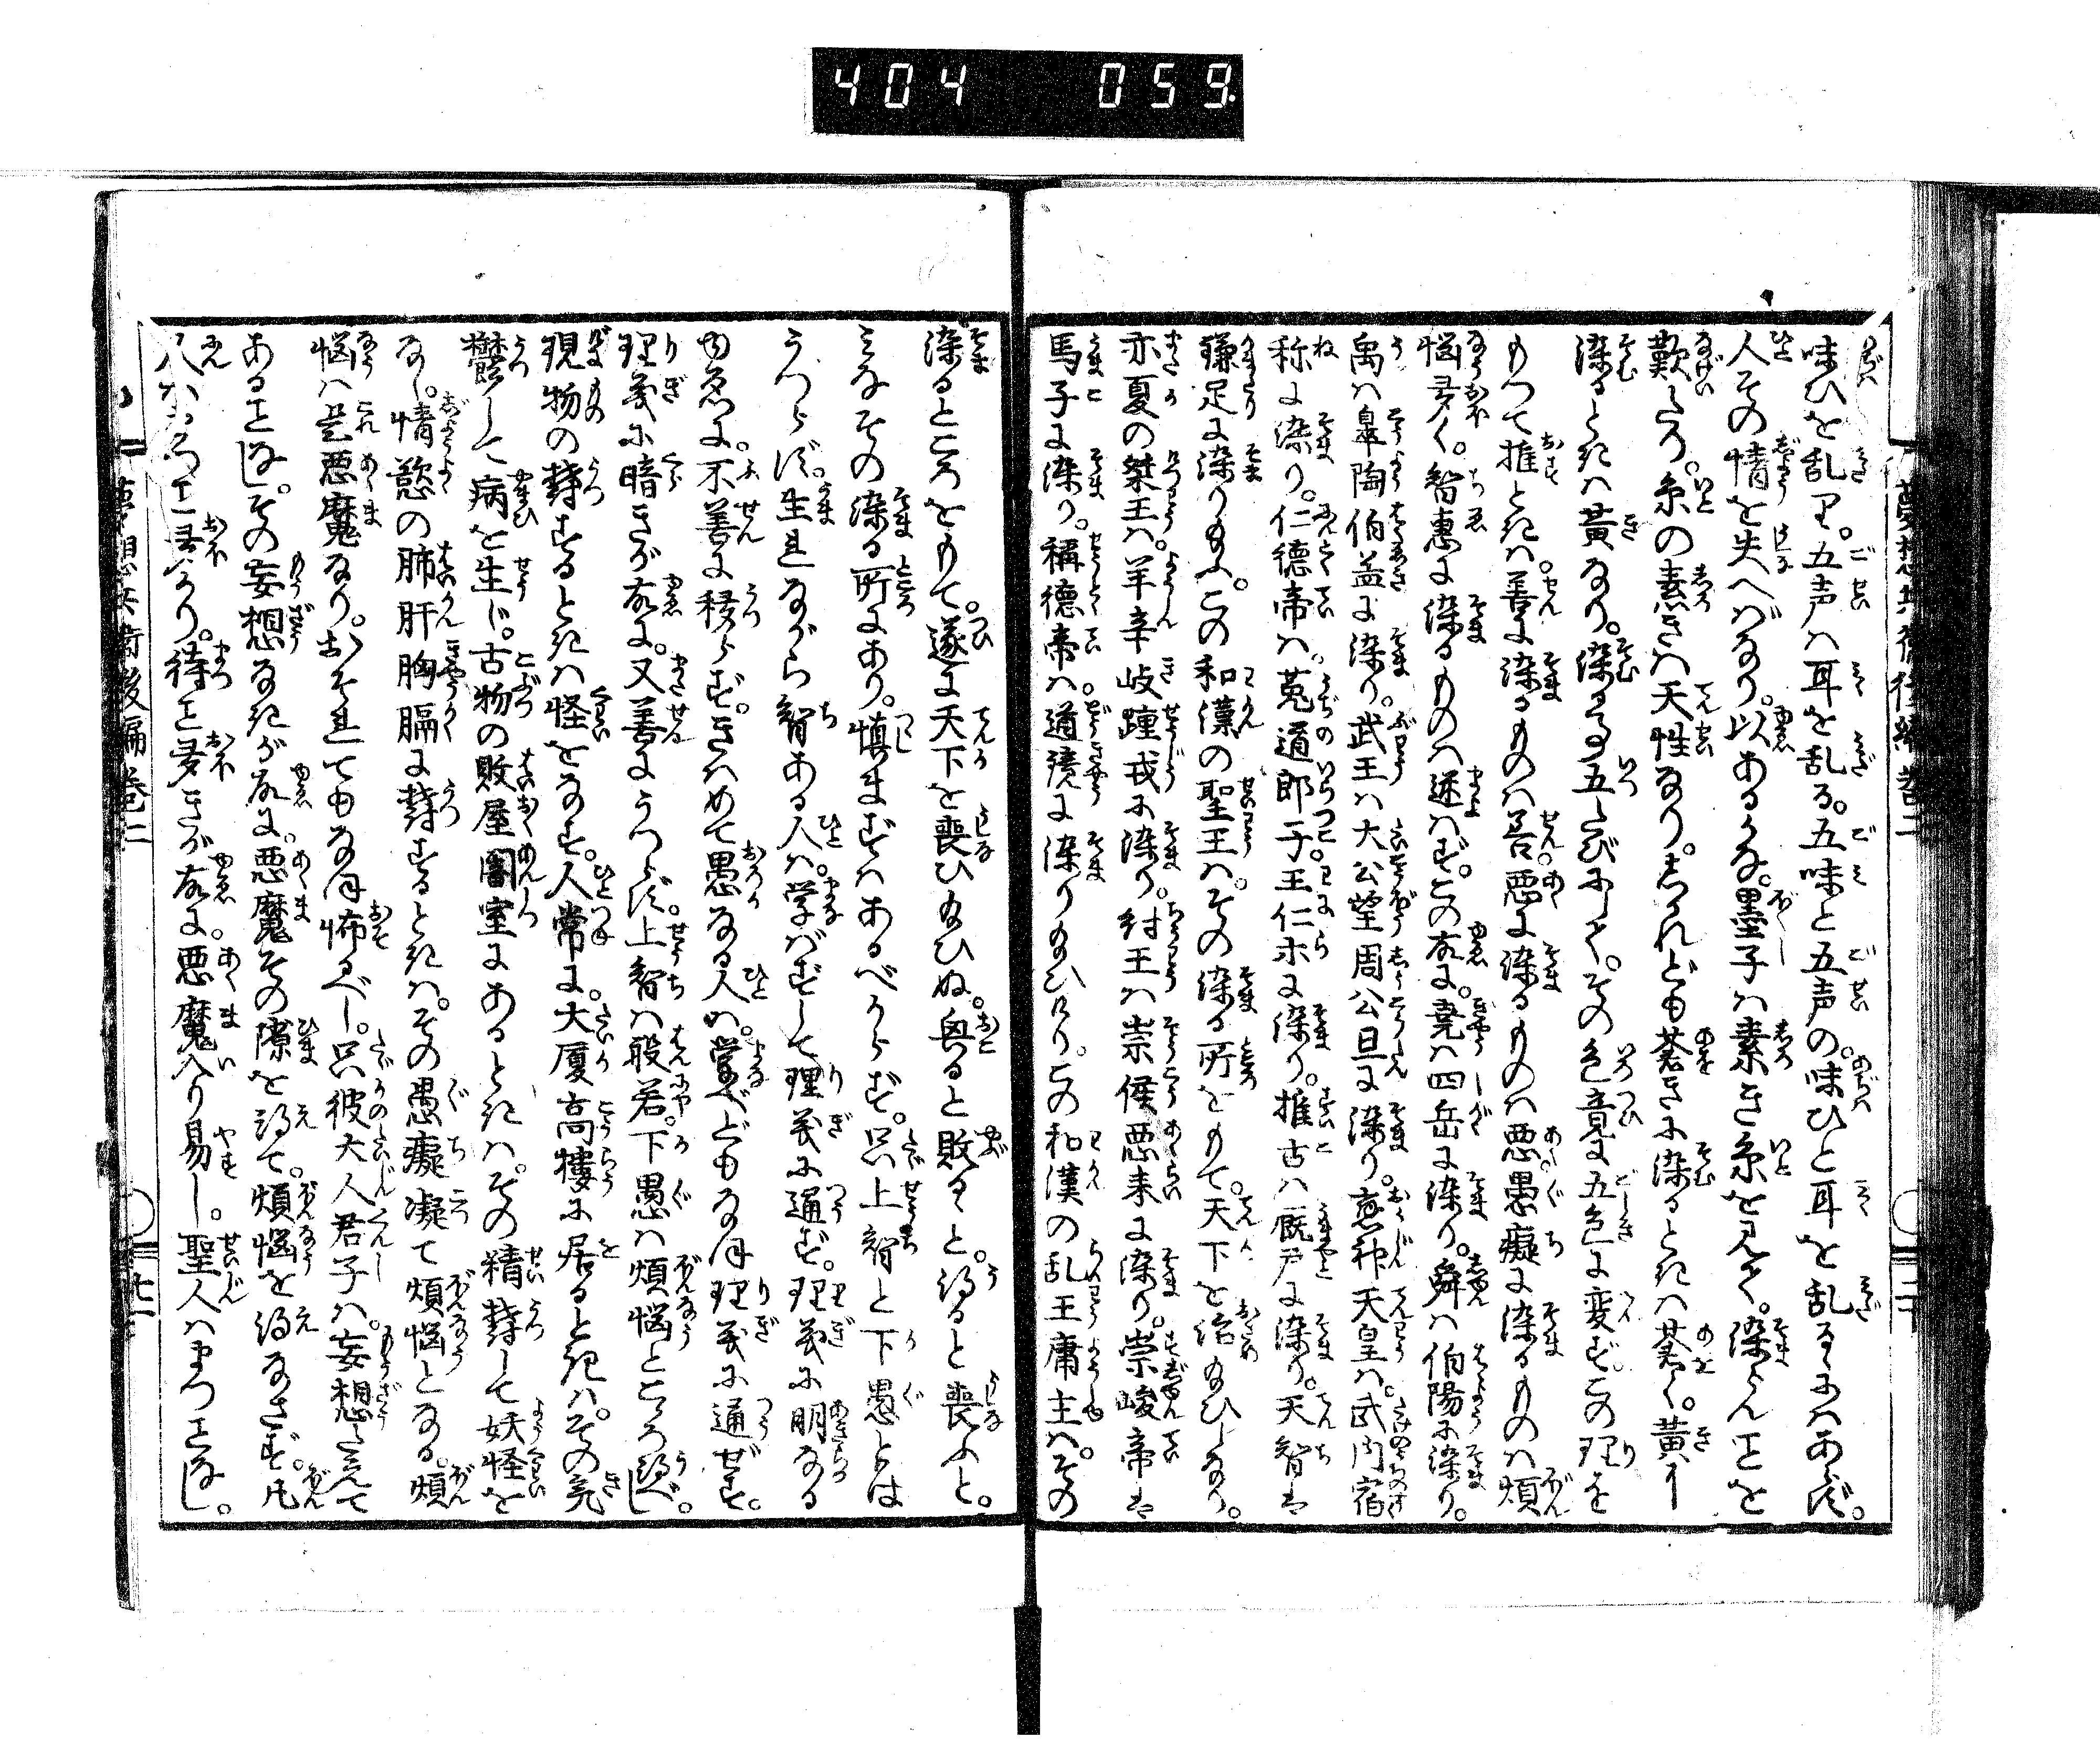 404 059
夢想兵衛後編巻二
味ひを乱り。五声は耳を乱る。五味と五声の。味ひと耳を乱るにはあらず。
人その情を失へばなり。以あるかな。墨子は素き糸を見て。染らんことを
歎たり。糸の素きは天性なり。されども蒼きに染るときは蒼く。黄に
染るときは黄なり。染る事五たびにして。その色竟に五色に変ず。この理を
もつて推ときは。善に染るものは善。悪に染るものは悪。愚癡に染るものは煩
悩多く。智恵に染るものは迷はず。この故に。堯は四岳に染り。舜は伯陽に染り。
禹は皐陶伯益に染り。武王は大公望周公旦に染り。応神天皇は。武内宿
祢に染り。仁徳帝は。菟道郎子王仁ホに染り。推古は厩戸に染り。天智は
鎌足に染り給ふ。この和漢の聖王は。その染る所をもて。天下を治給ひしなり。
亦夏の桀王は。羊辛岐踵戎に染り。紂王は崇侯悪来に染り。崇峻帝は
馬子に染り。稱徳帝は。道鏡に染り給ひけり。この和漢の乱王庸主は。その
染るところをもて。遂に天下を喪ひ給ひぬ。興ると敗るゝと。得ると喪ふと。
みなその染る所にあり。慎まずはあるべからず。只上智と下愚とは
うつらず。生れながら智ある人は。学ばずして理義に通ず。理義に明なる
ゆゑに。不善に移らず。きはめて愚なる人は。学べどもなほ理義に通ぜず。
理義に暗きが故に。又善にうつらず。上智は般若。下愚は煩悩とこゝろ得べし。
現物の欝するときは怪をなす。人常に。大厦高楼に居るときは。その気
欝して病を生じ。古物の敗屋闇室にあるときは。その精欝して妖怪を
なし。情慾の肺肝胸膈に欝するときは。その愚癡凝て煩悩となる。煩
悩は是悪魔なり。おそれてもなほ怖るべし。只彼大人君子は。妄想たえて
あることなし。その妄想なきが故に。悪魔その隙を得て。煩悩を得なさず。凡
人はまつこと多かり。待こと多きが故に。悪魔入り易し。聖人はまつことなし。
夢想兵衛後編巻二